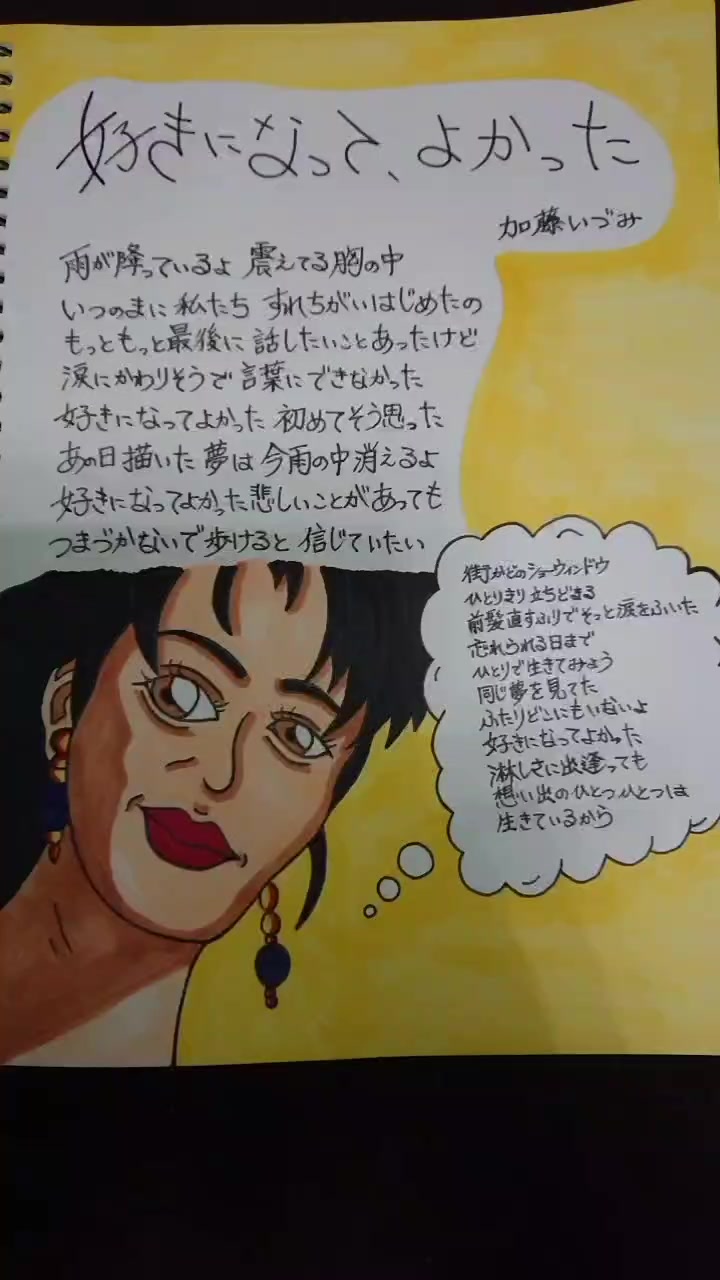 好きになって、よかった
加藤いづみ
雨が降っているよ 震えてる胸の中
いつのまに 私たち すれちがいはじめたの
もっともっと最後に 話したいことあったけど
涙にかわりそうで 言葉にできなかった
好きになってよかった 初めてそう思った
あの日描いた 夢は 今雨の中消えるよ
好きになってよかった悲しいことがあっても
つまづかないで歩けると 信じていたい
街かどのショーウィンドウ
ひとりきり立ちどまる
前髪直すふりでそっと涙をふいた
忘れられる日まで
ひとりで生きてみよう
同じ夢を見てた
ふたりどこにもいないよ
好きになってよかった
淋しさに出逢っても
想い出のひとつひとつは
生きているから